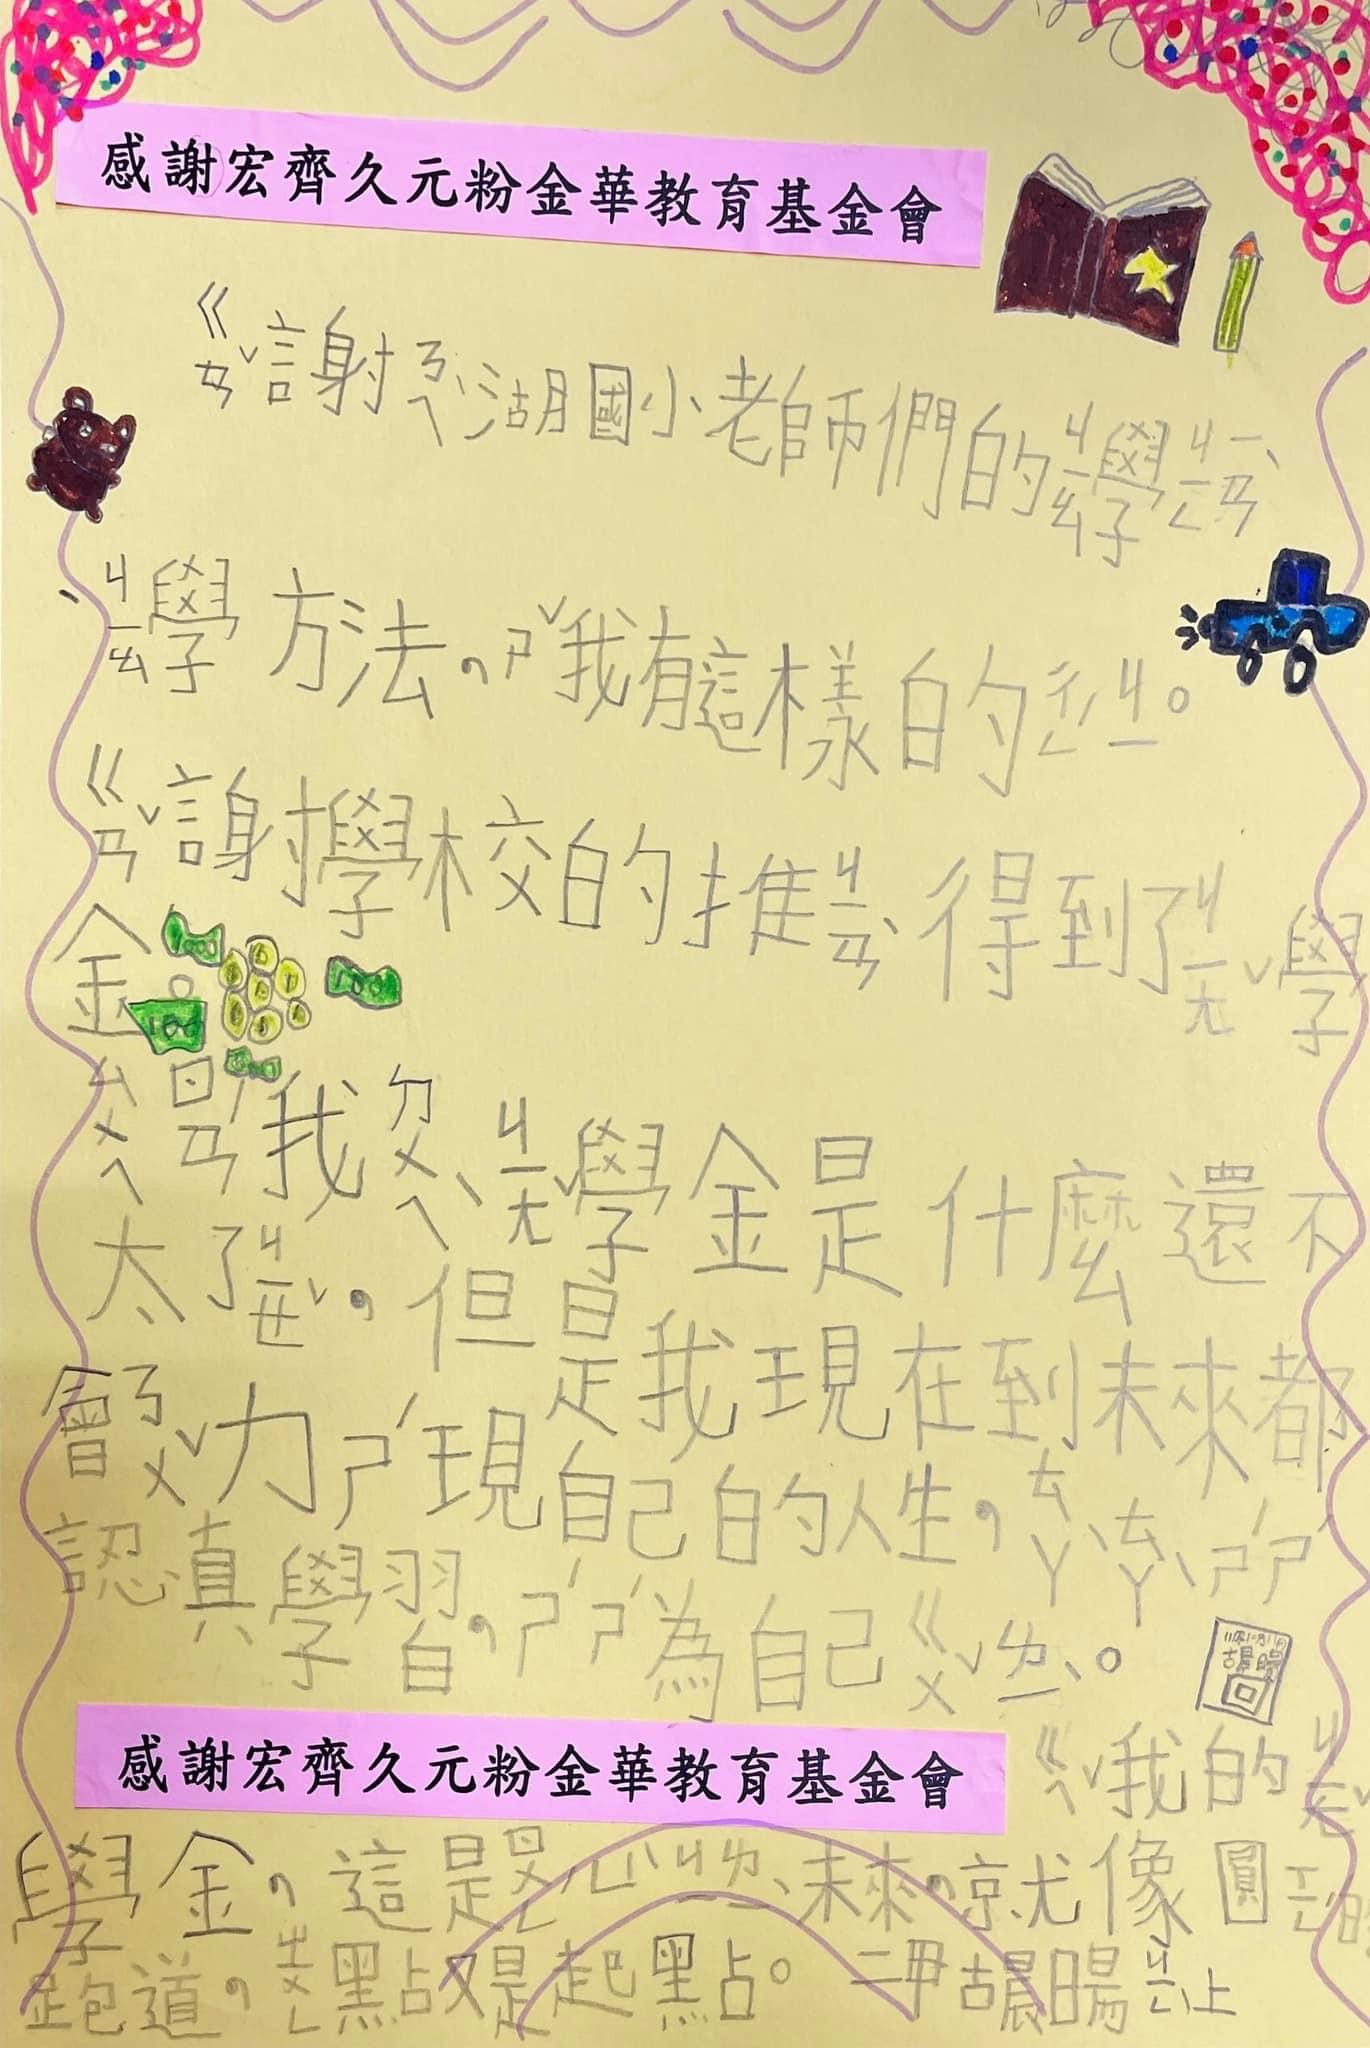 感謝宏齊久元粉金華教育基金會
ㄍㄢˇ謝ㄋㄟˋ湖國小老師們的ㄐㄧㄠ學ㄐㄧㄥㄧㄢˋ
ㄐㄧㄠˋ學方法,ㄕˇ我有這樣的ㄔㄥˊㄐㄧ。
ㄍㄢˇ謝學校的推ㄐㄧㄢˋ得到了ㄐㄧㄤˇ學
金。
100
100
100
ㄙㄨㄟ ㄖㄢˊ我ㄉㄨㄟˋㄐㄧㄤˇ學金是什麼還不
太了ㄐㄧㄝˇ,但是我現在到未來都
會ㄋㄨˇ力ㄕˊ現自己的人生,ㄊㄚˋㄊㄚˋㄕˊㄕˊ
認真學習,ㄕˊㄕˊ為自己ㄍㄨˇㄌㄧˋ。
胡晨暘
感謝宏齊久元粉金華教育基金會
ㄍㄟˇ我的ㄐㄧㄤˇ
學金,這是 未來,就像圓
跑道,ㄓㄨㄥ點又是起點。二甲胡晨暘ㄐㄧㄥˋ上